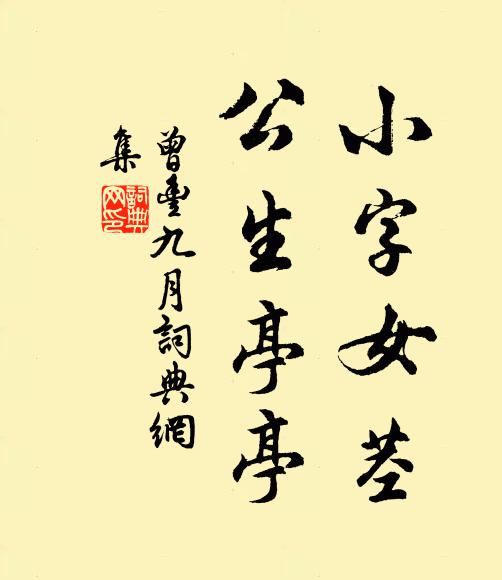 小字女茎
公生亭亭
曾豐九月詞典網
集
詞典網印